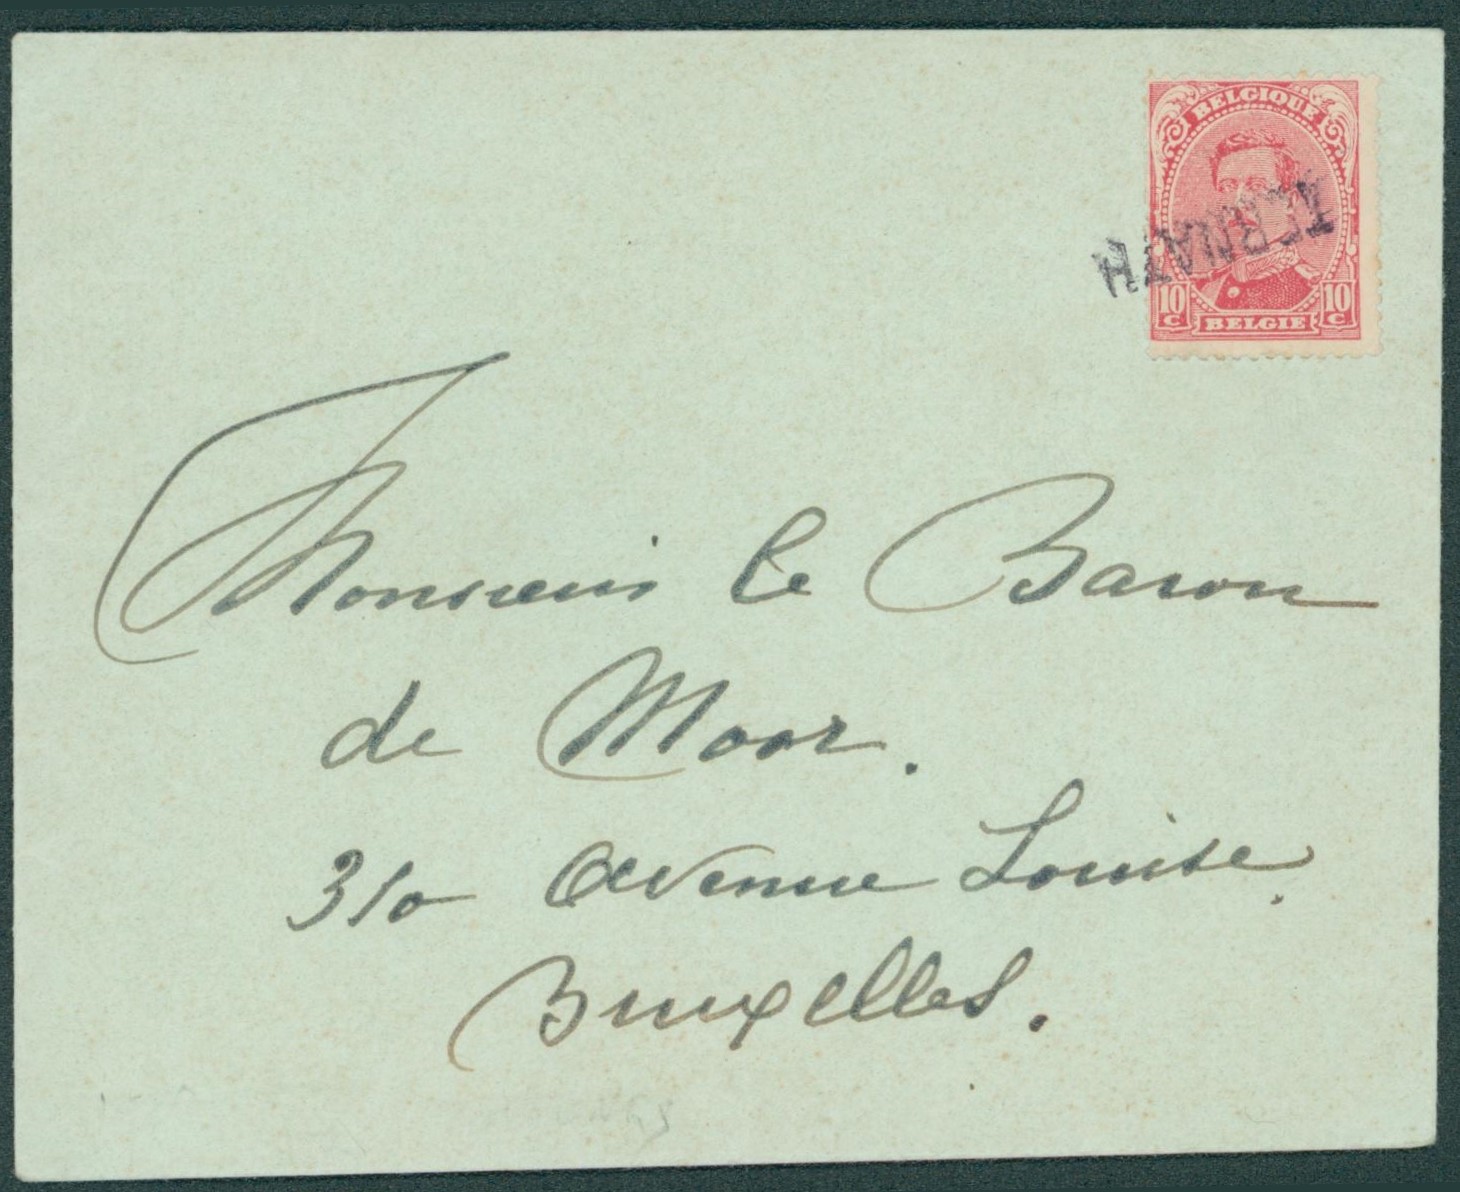 BELGIQUE
TERNATH
10 C BELGIE 10 C
Monsieur le Baron
de Moor.
310 Avenue Louise.
Bruxelles.